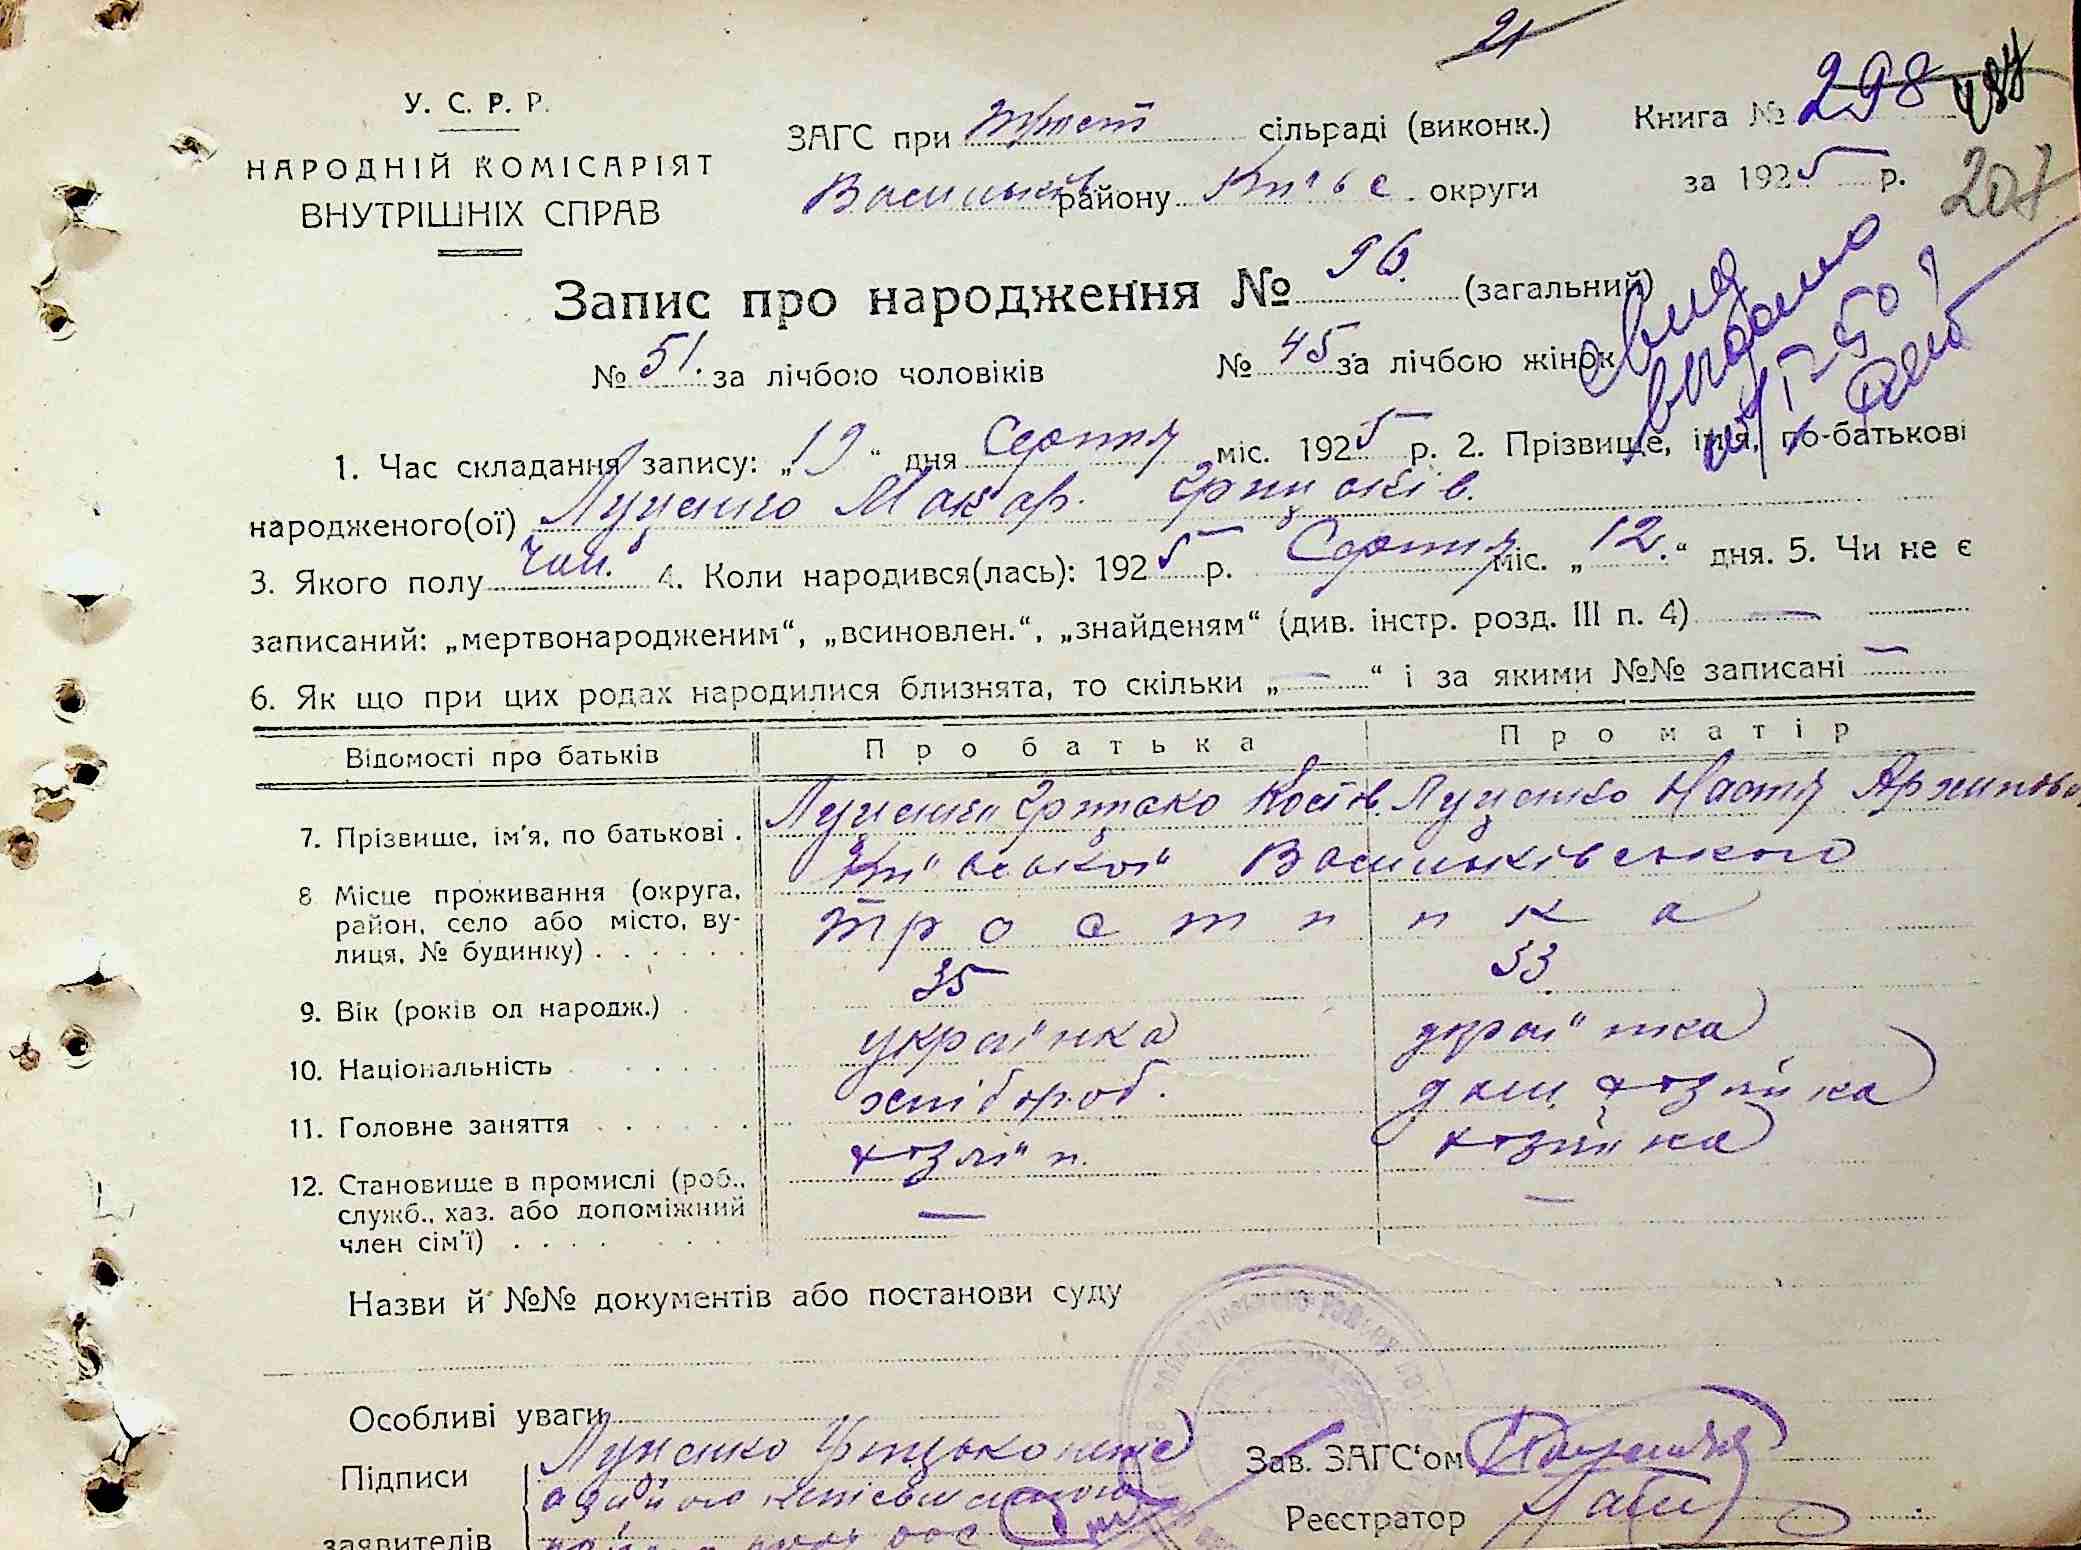 21
У. С. Р. Р.
НАРОДНІЙ КОМІСАРІЯТ
ВНУТРІШНІХ СПРАВ
ЗАГС при сільраді (виконк.)
Васильків району Київс округи
Книга № 298 487
за 1925 р. 207
Запис про народження № 96. (загальний)
№ 51. за лічбою чоловіків № 45 за лічбою жінок
свид
выдано
1. Час складання запису: „19“ дня Серпня міс. 1925 р. 2. Прізвище, ім'я, по-батькові
народженого(ої) Луценко Макар. Грицьків.
3. Якого полу Чол. 4. Коли народився(лась): 1925 р. Серпня міс. „12.“ дня. 5. Чи не є
записаний: „мертвонародженим“, „всиновлен.“, „знайденям“ (див. інстр. розд. III п. 4) —
6. Як що при цих родах народилися близнята, то скільки „—“ і за якими №№ записані —
Відомості про батьків Про батька Про матір
7. Прізвище, ім'я, по батькові . Луценко Грицько Костів. Луценко Настя Архипова
8 Місце проживання (округа, район, село або місто, вулиця, № будинку) . . . . . . Київської Васильківського
Тростинка
9. Вік (років од народж.) 35 33
10. Національність українка українка
11. Головне заняття хлібороб. дом. хозяйка
12. Становище в промислі (роб., служб., хаз. або допоміжний член сім'ї) хозяїн. хозяйка
— —
Назви й №№ документів або постанови суду
Особливі уваги
Підписи Луценко Грицько
заявителів
Зав. ЗАГС'ом
Реєстратор